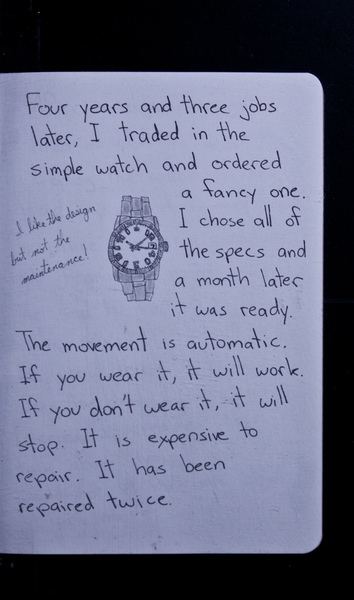 Four years and three jobs
later, I traded in the
simple watch and ordered
a fancy one.
I chose all of
the specs and
a month later
it was ready.
I like the design
but not the
maintenance!
The movement is automatic.
If you wear it, it will work.
If you don't wear it, it will
stop. It is expensive to
repair. It has been
repaired twice.